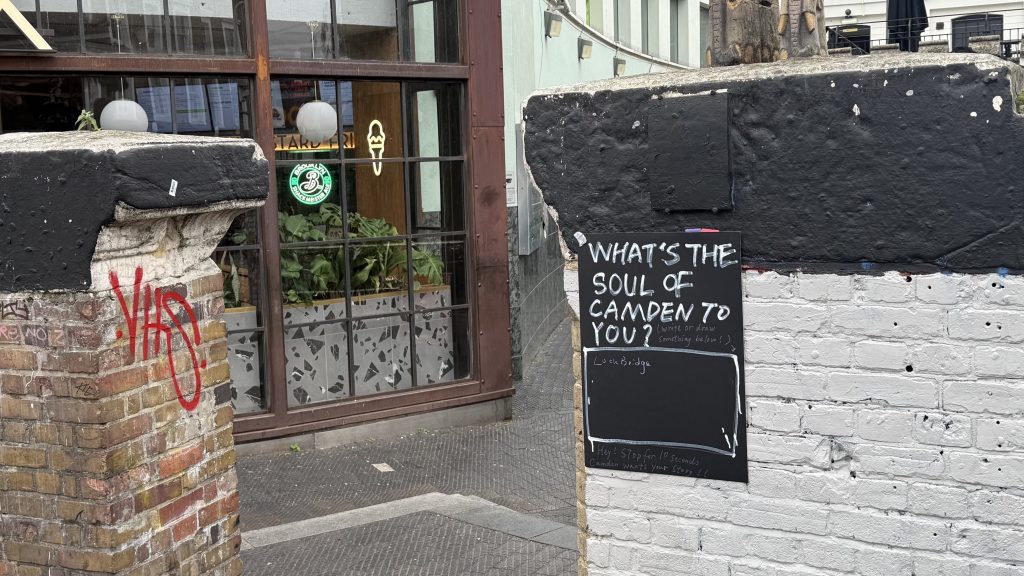 TARD FRI
BROOKLYN
B
VHS
WHAT'S THE
SOUL OF
CAMDEN TO
YOU?
(write or draw
something below!)
Lock Bridge
Hey! Stop for 10 seconds
Camden wants your story!!